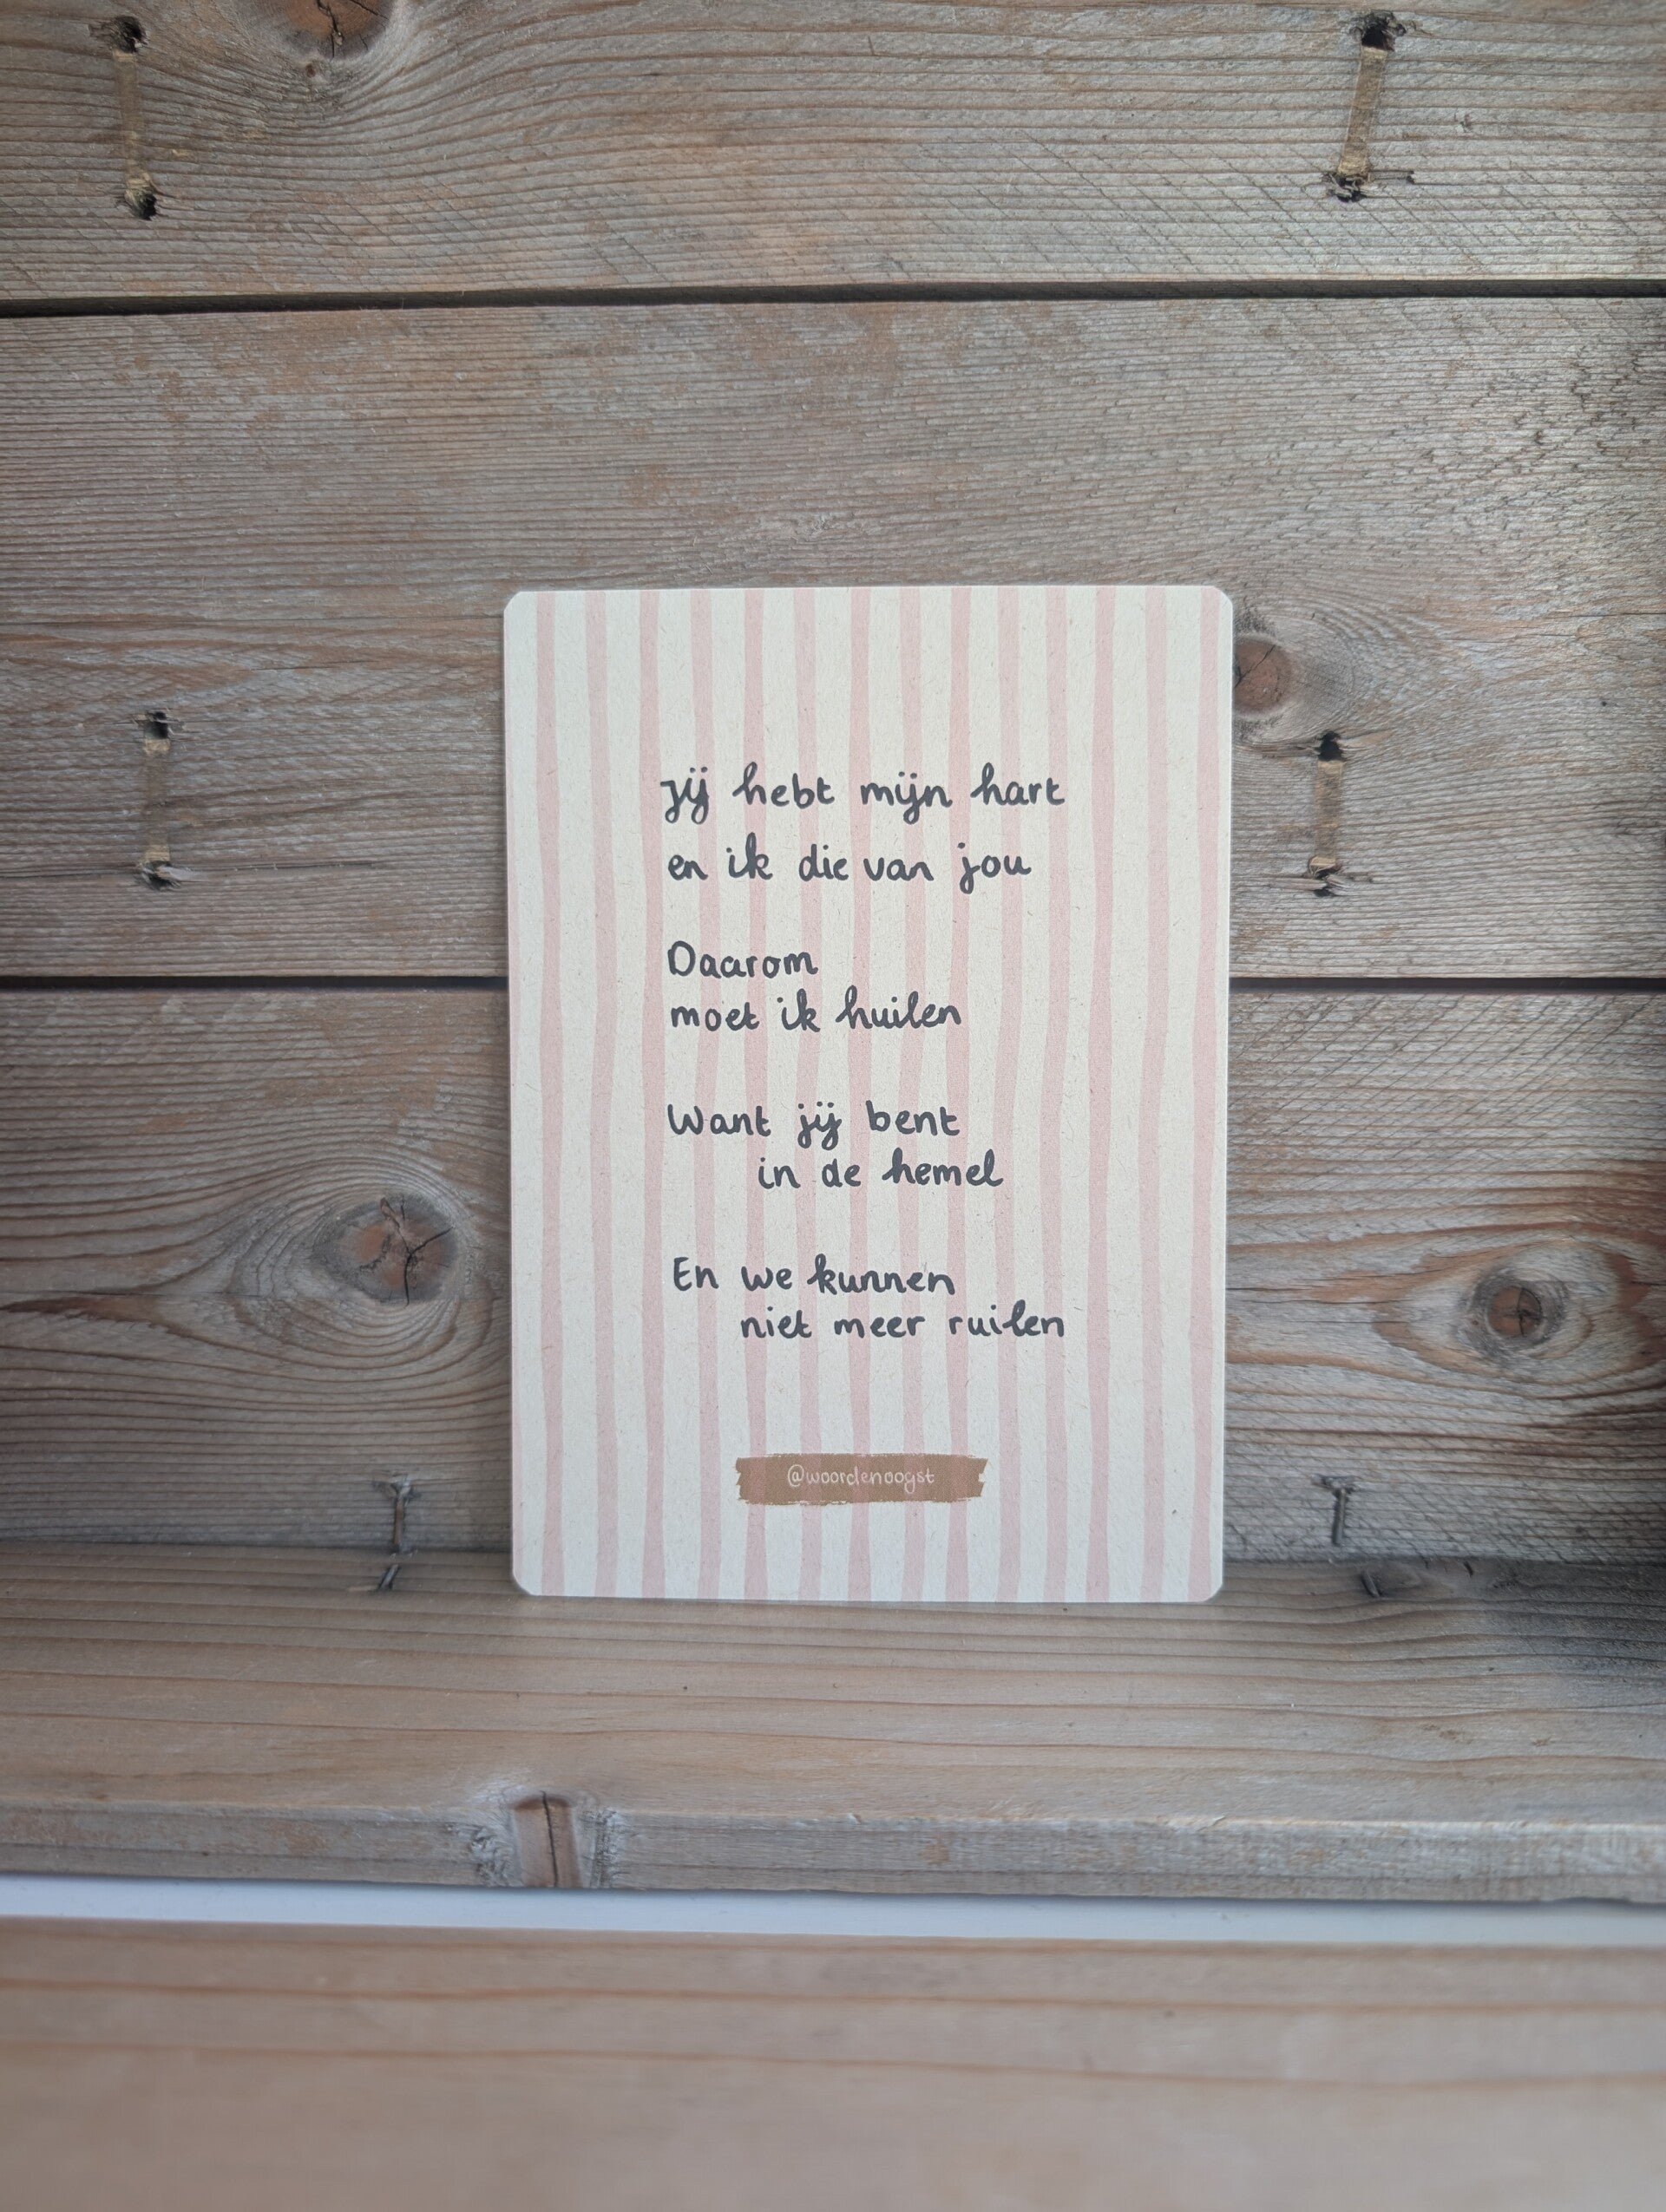 Jij hebt mijn hart
en ik die van jou
Daarom
moet ik huilen
Want jij bent
in de hemel
En we kunnen
niet meer ruilen
@woordenoogst